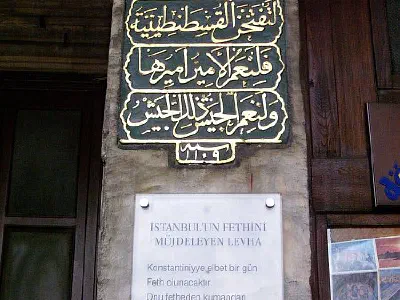 لتفتحن القسطنطينية
فلنعم الأمير أميرها
ولنعم الجيش ذلك الجيش
سنة
İSTANBUL'UN FETHİNİ
MÜJDELEYEN LEVHA
Konstantiniyye elbet bir gün
Feth olunacaktır.
Onu fetheden kumandan